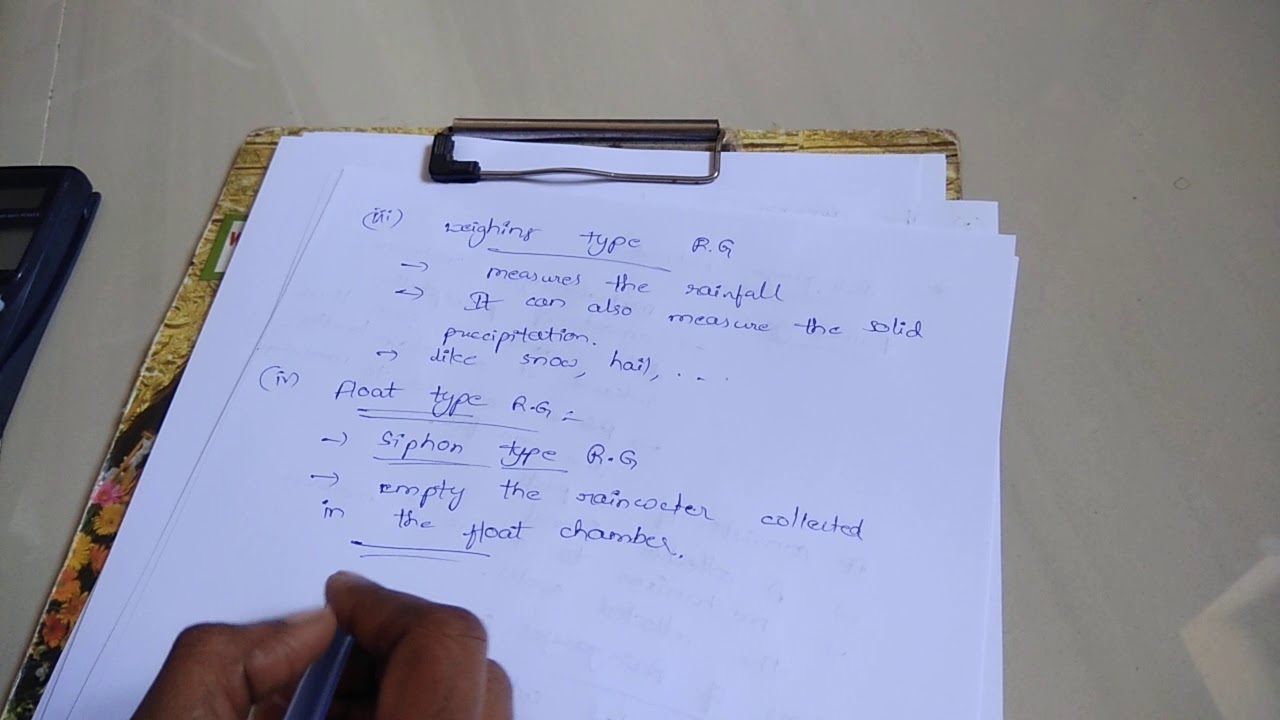 (iii) weighing type R.G
→ measures the rainfall
→ It can also measure the solid
precipitation.
→ like snow, hail, . . .
(iv) Float type R.G :-
→ Siphon type R.G
→ empty the rainwater collected
in the float chamber.